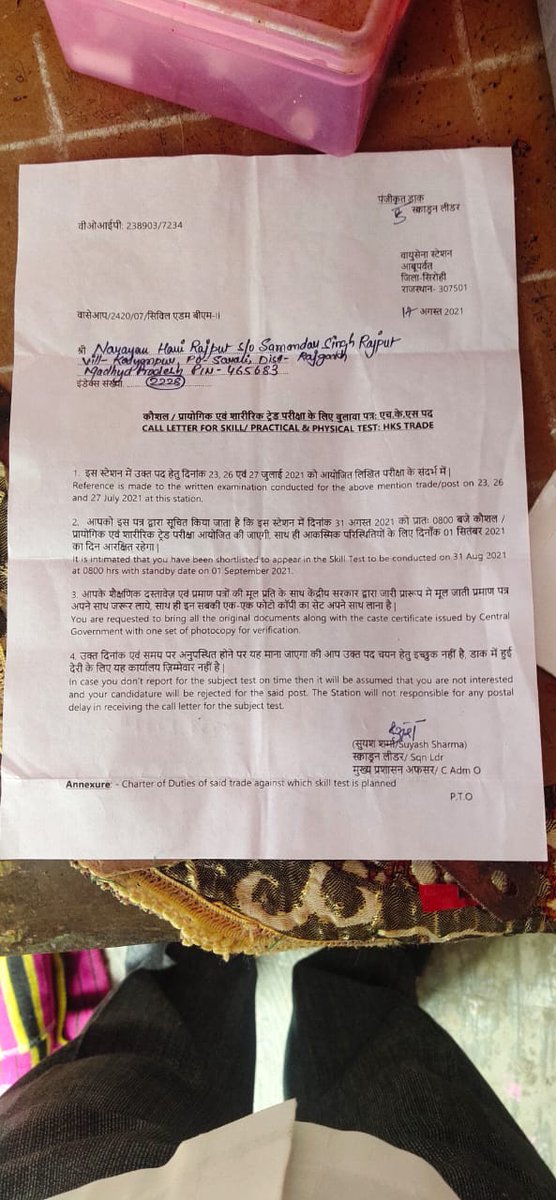 पंजीकृत डाक
स्क्वाड्रन लीडर
वीओआईपी: 238903/7234
वायुसेना स्टेशन
आबूपर्वत
जिला-सिरोही
राजस्थान- 307501
वासेआप/2420/07/सिविल एडम बीएम-II
अगस्त 2021
श्री Narayan Hari Rajput s/o Samandar Singh Rajput
Vill- Kalyanpur, PO- Savali, Dist- Rajgarh
Madhya Pradesh PIN- 465683
इंडेक्स संख्या 2228
कौशल / प्रायोगिक एवं शारीरिक ट्रेड परीक्षा के लिए बुलावा पत्र: एच.के.एस पद
CALL LETTER FOR SKILL/ PRACTICAL & PHYSICAL TEST: HKS TRADE
1. इस स्टेशन में उक्त पद हेतु दिनांक 23, 26 एवं 27 जुलाई 2021 को आयोजित लिखित परीक्षा के संदर्भ में |
Reference is made to the written examination conducted for the above mention trade/post on 23, 26
and 27 July 2021 at this station.
2. आपको इस पत्र द्वारा सूचित किया जाता है कि इस स्टेशन में दिनांक 31 अगस्त 2021 को प्रातः 0800 बजे कौशल /
प्रायोगिक एवं शारीरिक ट्रेड परीक्षा आयोजित की जाएगी, साथ ही आकस्मिक परिस्थितियों के लिए दिनाँक 01 सितंबर 2021
का दिन आरक्षित रहेगा |
It is intimated that you have been shortlisted to appear in the Skill Test to be conducted on 31 Aug 2021
at 0800 hrs with standby date on 01 September 2021.
3. आपके शैक्षणिक दस्तावेज़ एवं प्रमाण पत्रों की मूल प्रति के साथ केंद्रीय सरकार द्वारा जारी प्रारूप मे मूल जाती प्रमाण पत्र
अपने साथ जरूर लाये, साथ ही इन सबकी एक-एक फोटो कॉपी का सेट अपने साथ लाना है |
You are requested to bring all the original documents along with the caste certificate issued by Central
Government with one set of photocopy for verification.
4. उक्त दिनांक एवं समय पर अनुपस्थित होने पर यह माना जाएगा की आप उक्त पद चयन हेतु इच्छुक नहीं है, डाक में हुई
देरी के लिए यह कार्यालय ज़िम्मेवार नहीं है |
In case you don't report for the subject test on time then it will be assumed that you are not interested
and your candidature will be rejected for the said post. The Station will not responsible for any postal
delay in receiving the call letter for the subject test.
(सुयश शर्मा/Suyash Sharma)
स्क्वाड्रन लीडर/ Sqn Ldr
मुख्य प्रशासन अफसर/ C Adm O
Annexure: - Charter of Duties of said trade against which skill test is planned
P.T.O